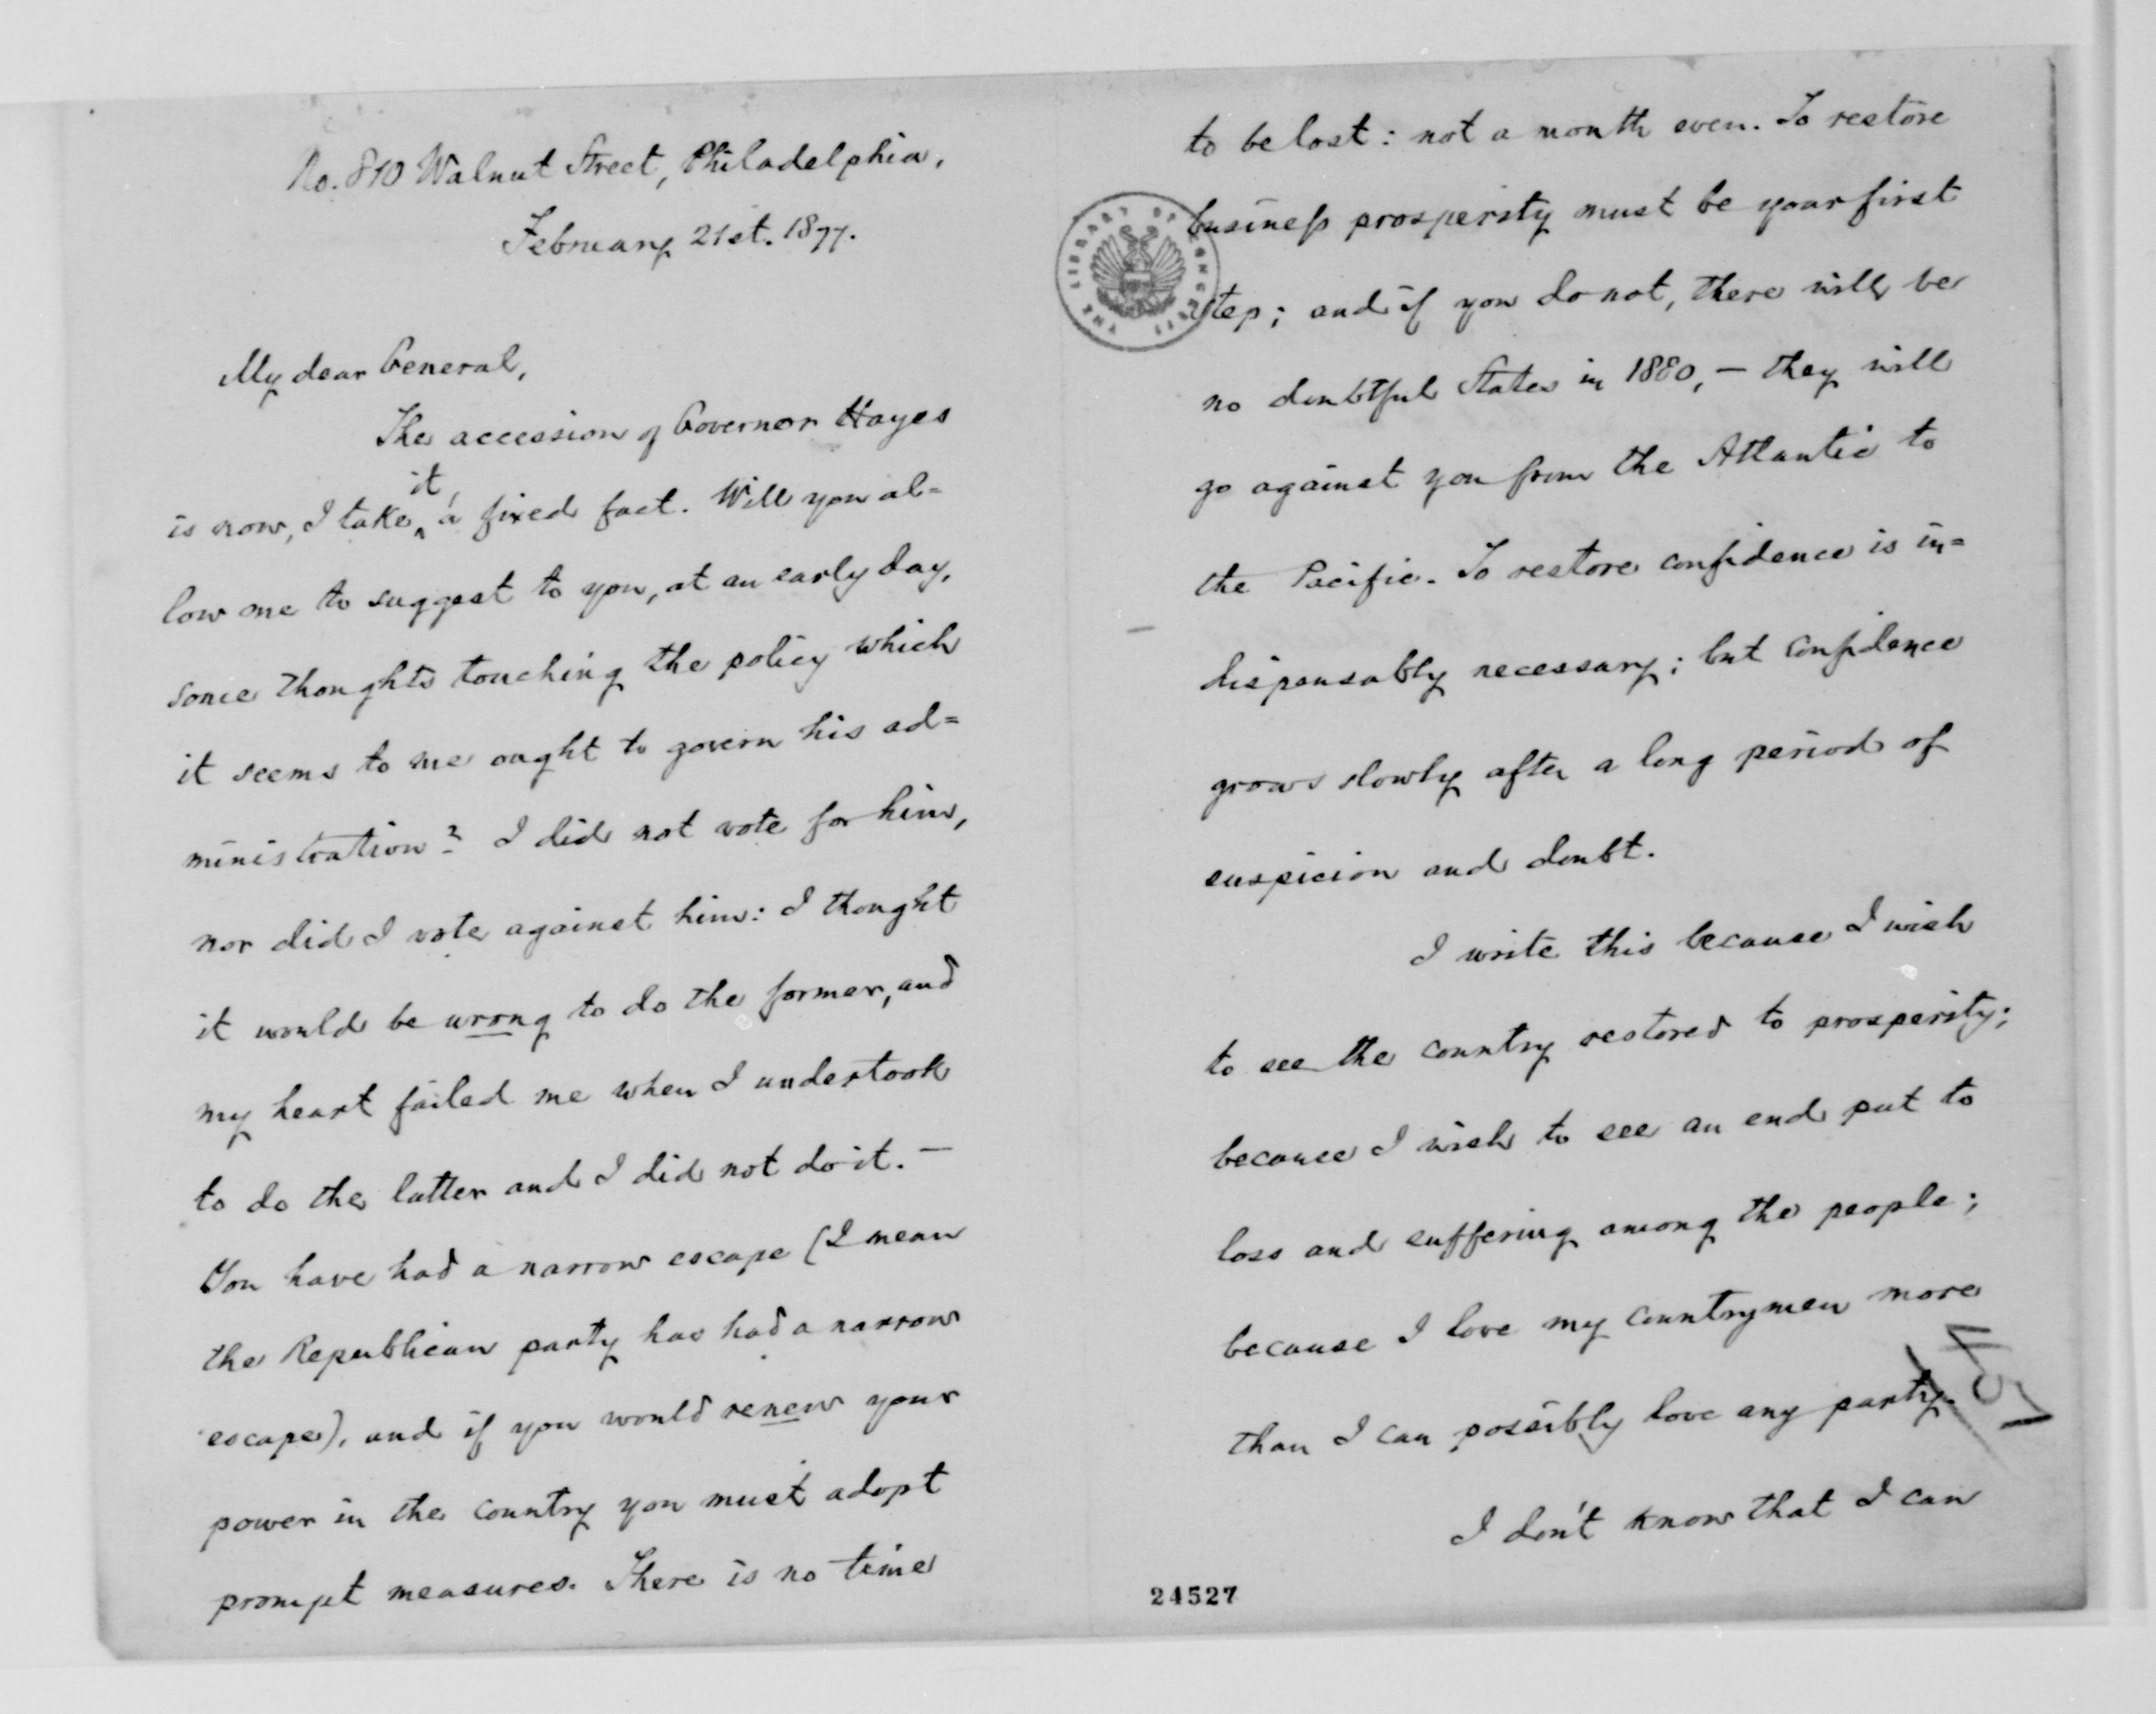 No. 810 Walnut Street, Philadelphia,
February 21st. 1877.
My dear General,
The accession of Governor Hayes
is now, I take it, a fixed fact. Will you al=
low me to suggest to you, at an early day,
some thoughts touching the policy which
it seems to me ought to govern his ad=
ministration? I did not vote for him,
nor did I vote against him: I thought
it would be wrong to do the former, and
my heart failed me when I undertook
to do the latter and I did not do it. —
You have had a narrow escape (I mean
the Republican party has had a narrow
escape), and if you would renew your
power in the country you must adopt
prompt measures. There is no time
to be lost: not a month even. To restore
business prosperity must be your first
step; and if you do not, there will be
no doubtful States in 1880, — they will
go against you from the Atlantic to
the Pacific. To restore confidence is in=
dispensably necessary; but confidence
grows slowly after a long period of
suspicion and doubt.
I write this because I wish
to see the country restored to prosperity;
because I wish to see an end put to
loss and suffering among the people;
because I love my countrymen more
than I can possibly love any party.
I don't know that I can
THE LIBRARY OF CONGRESS
24527